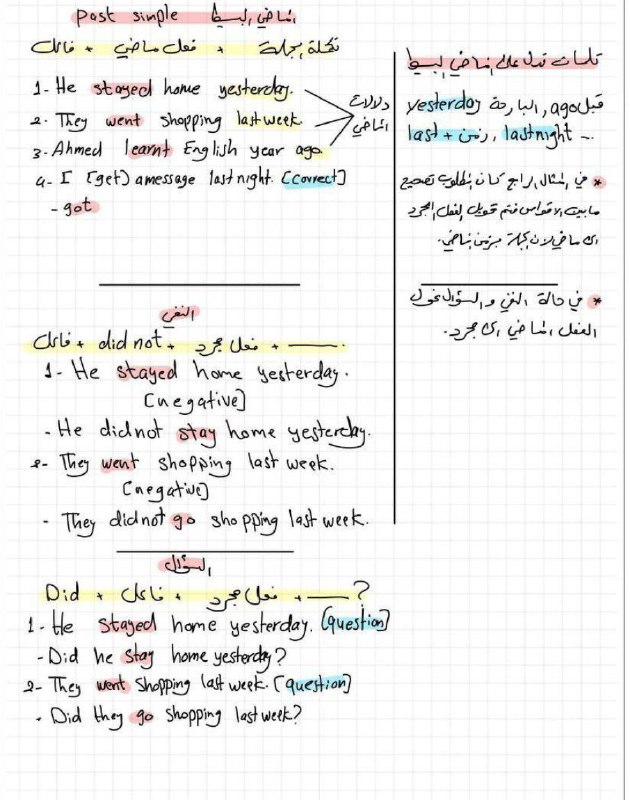 past simple الماضي البسيط
فاعل + فعل ماضي + تكملة الجملة
1- He stayed home yesterday.
2- They went shopping last week.
3- Ahmed learnt English year ago
دلالات الماضي
4- I [get] a message last night. [correct]
- got
النفي
فاعل + did not + فعل مجرد + ——.
1- He stayed home yesterday.
[negative]
- He did not stay home yesterday.
2- They went shopping last week.
[negative]
- They did not go shopping last week.
السؤال
Did + فاعل + فعل مجرد + —— ?
1- He stayed home yesterday. [question]
- Did he stay home yesterday?
2- They went shopping last week. [question]
- Did they go shopping last week?
كلمات تدل على الماضي البسيط
قبل ago, البارحة yesterday
last + زمن, last night ...
* في المثال الرابع كان المطلوب تصحيح
ما بين الاقواس فتم تحويل الفعل المجرد
الى ماضي لان الجملة بزمن الماضي.
* في حالة النفي والسؤال نحول
الفعل الماضي الى مجرد.